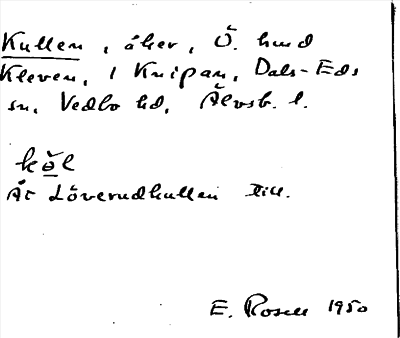 Kullen, åker, Ö. hmd
Kleven, 1 Knipan, Dals-Eds
sn, Vedbo hd, Älvsb. l.
köl
Åt Löverudkullen till.
E. Rosell 1950